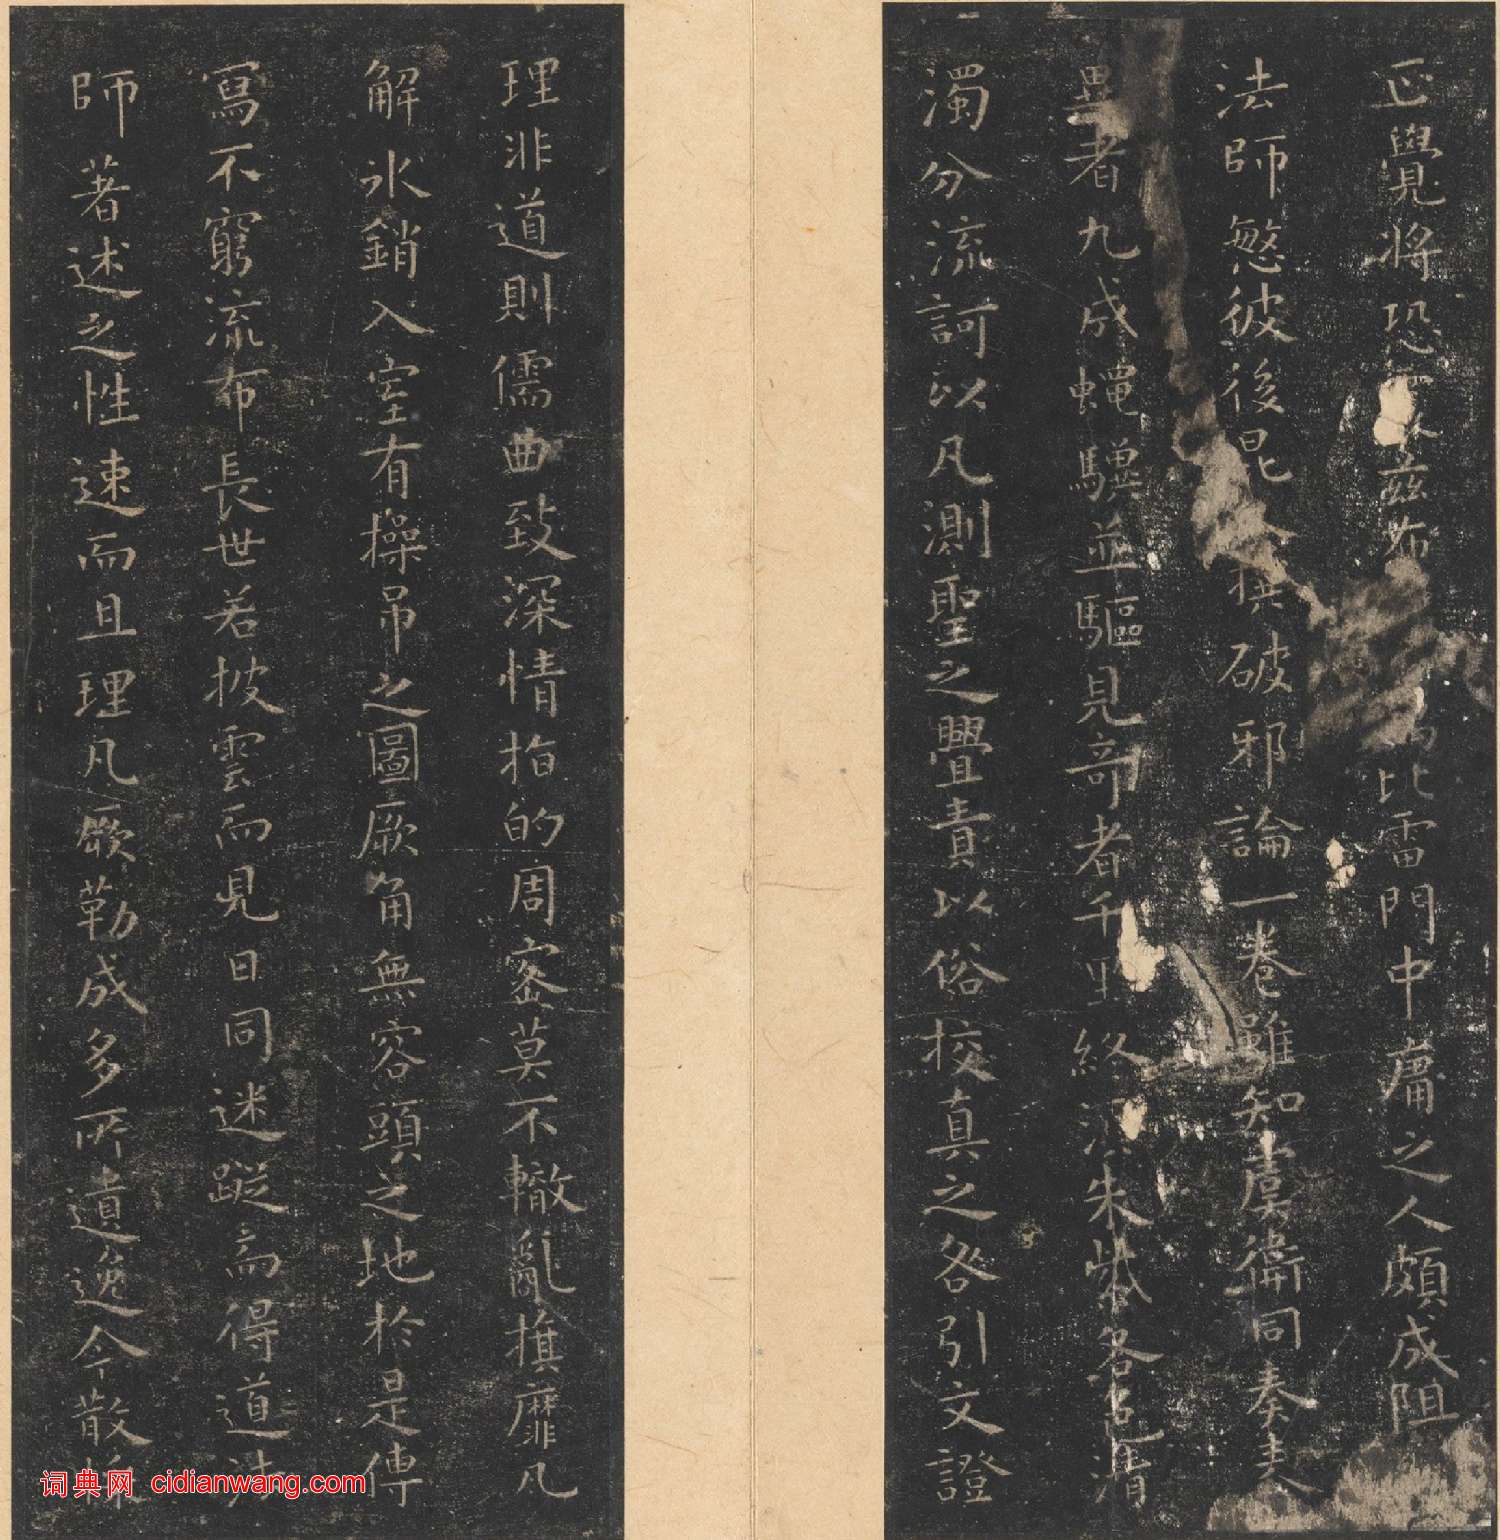 正覺將恐茲布比雷門中庸之人頗成阻
法師愍彼後昆撰破邪論一卷雖知虞衛同奏表
異者九成蠅驥並驅見奇者千里終須朱紫各色清
濁分流訶以凡測聖之舋責以俗校真之咎引文證
理非道則儒曲致深情指的周密莫不轍亂旗靡凡
解氷銷入室有操吊之圖厥角無容頭之地於是傳
寫不窮流布長世若披雲而見日同迷蹤而得道法
師著述之性速而且理凡厥勒成多所遺逸今散採
词典网 cidianwang.com